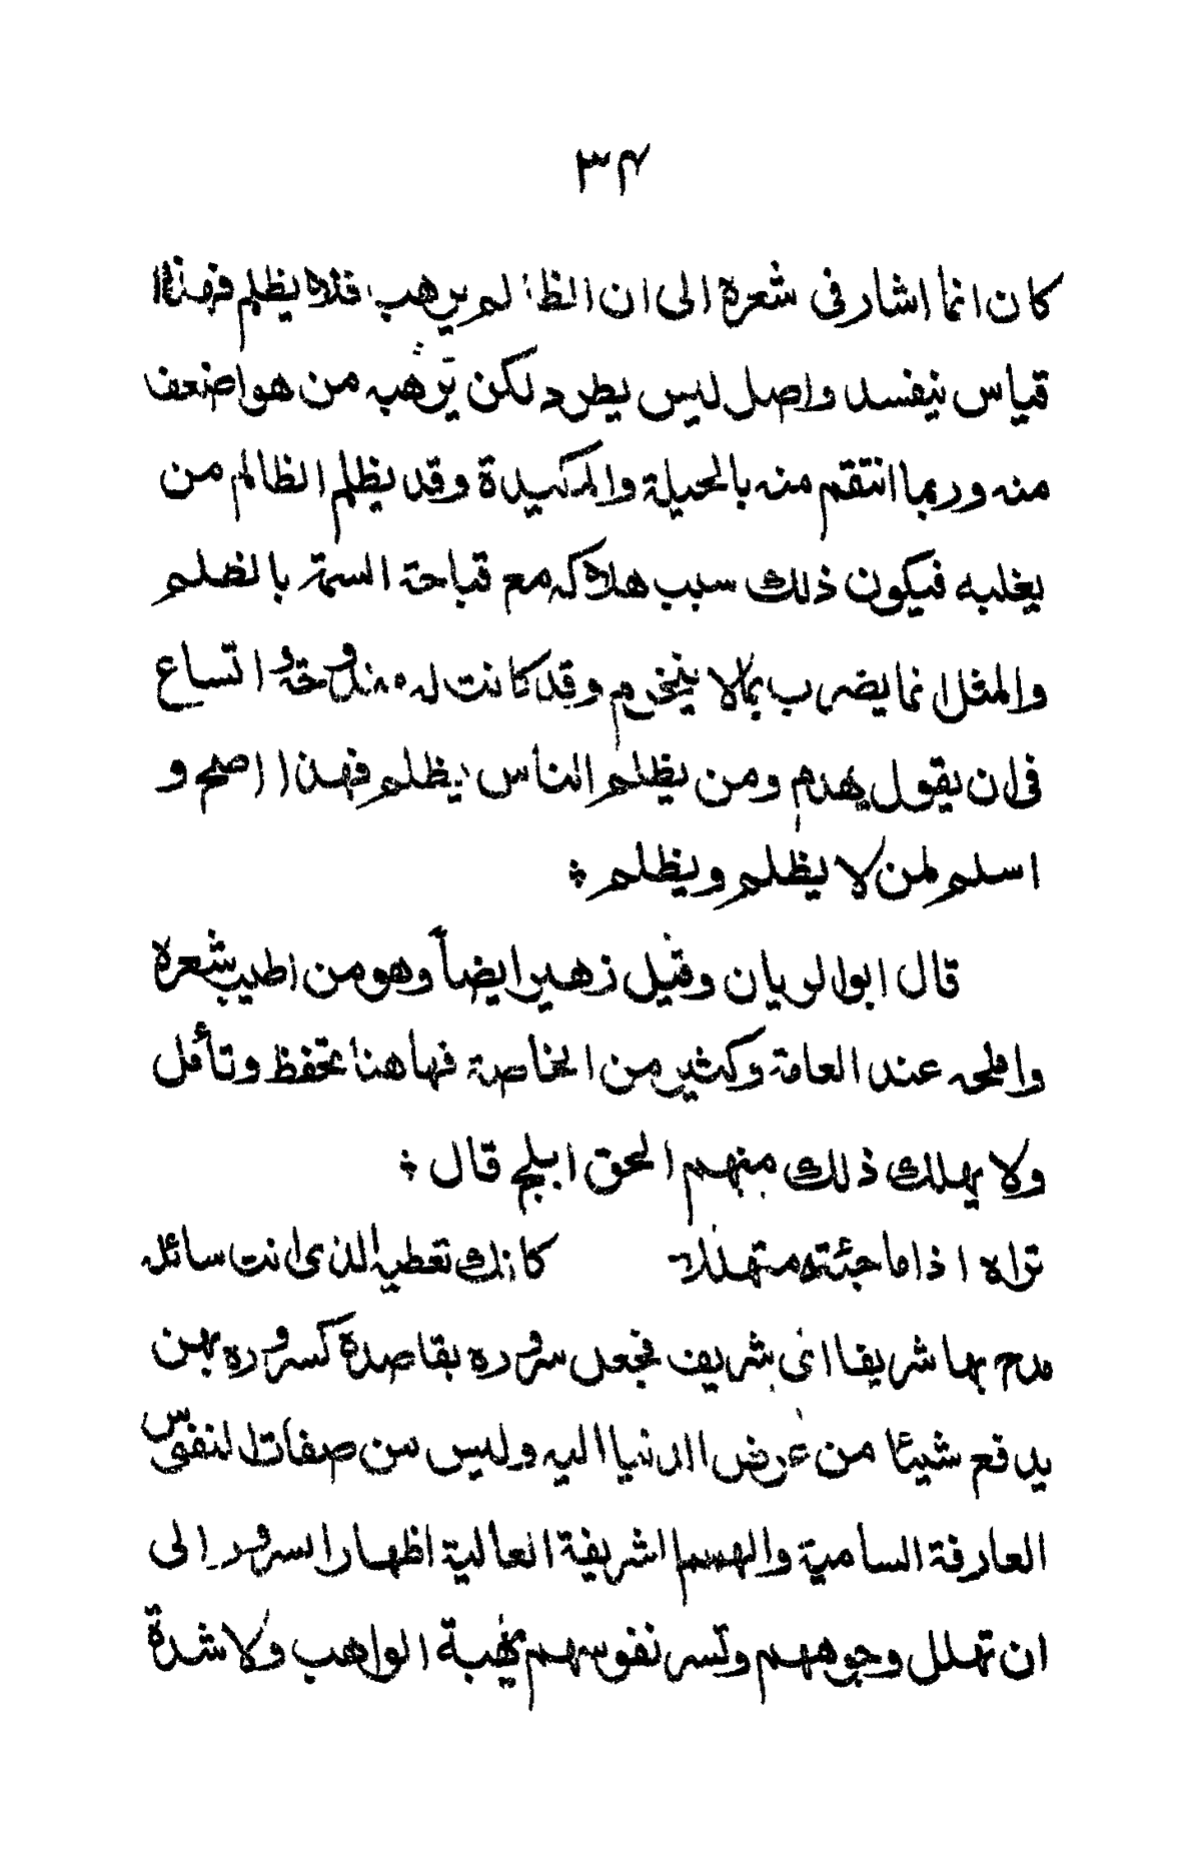 ٣٤
كان انما اشار فى شعره الى ان الظالم يرهب فلا يظلم فهذا
قياس ينفسد واصل ليس يطرد لكن يرهبه من هو اضعف
منه وربما انتقم منه بالحيلة والمكيدة وقد يظلم الظالم من
يغلبه فيكون ذلك سبب هلاكه مع قباحة السمة بالظلم
والمثل انما يضرب بما لا ينخرم وقد كانت له مندوحة و اتساع
فى ان يقول يهدم ومن يظلم الناس يظلم فهذا اصح و
اسلم لمن لا يظلم ويظلم
قال ابو الريان وقيل زهير ايضاً وهو من اطيب شعره
واملحه عند العامة وكثير من الخاصة فها هنا تحفظ وتأمل
ولا يهلك ذلك منهم الحق ابلج قال
تراه اذا ما جئته متهللا كانك تعطيه الذى انت سائله
مدح بها شريفا اى شريف فجعل سروره بقاصده كسروره بمن
يدفع شيئا من عرض الدنيا اليه وليس من صفات النفوس
العارفة السامية والهمم الشريفة العالية اظهار السرور الى
ان تهلل وجوههم وتسر نفوسهم بهبة الواهب ولا شدة